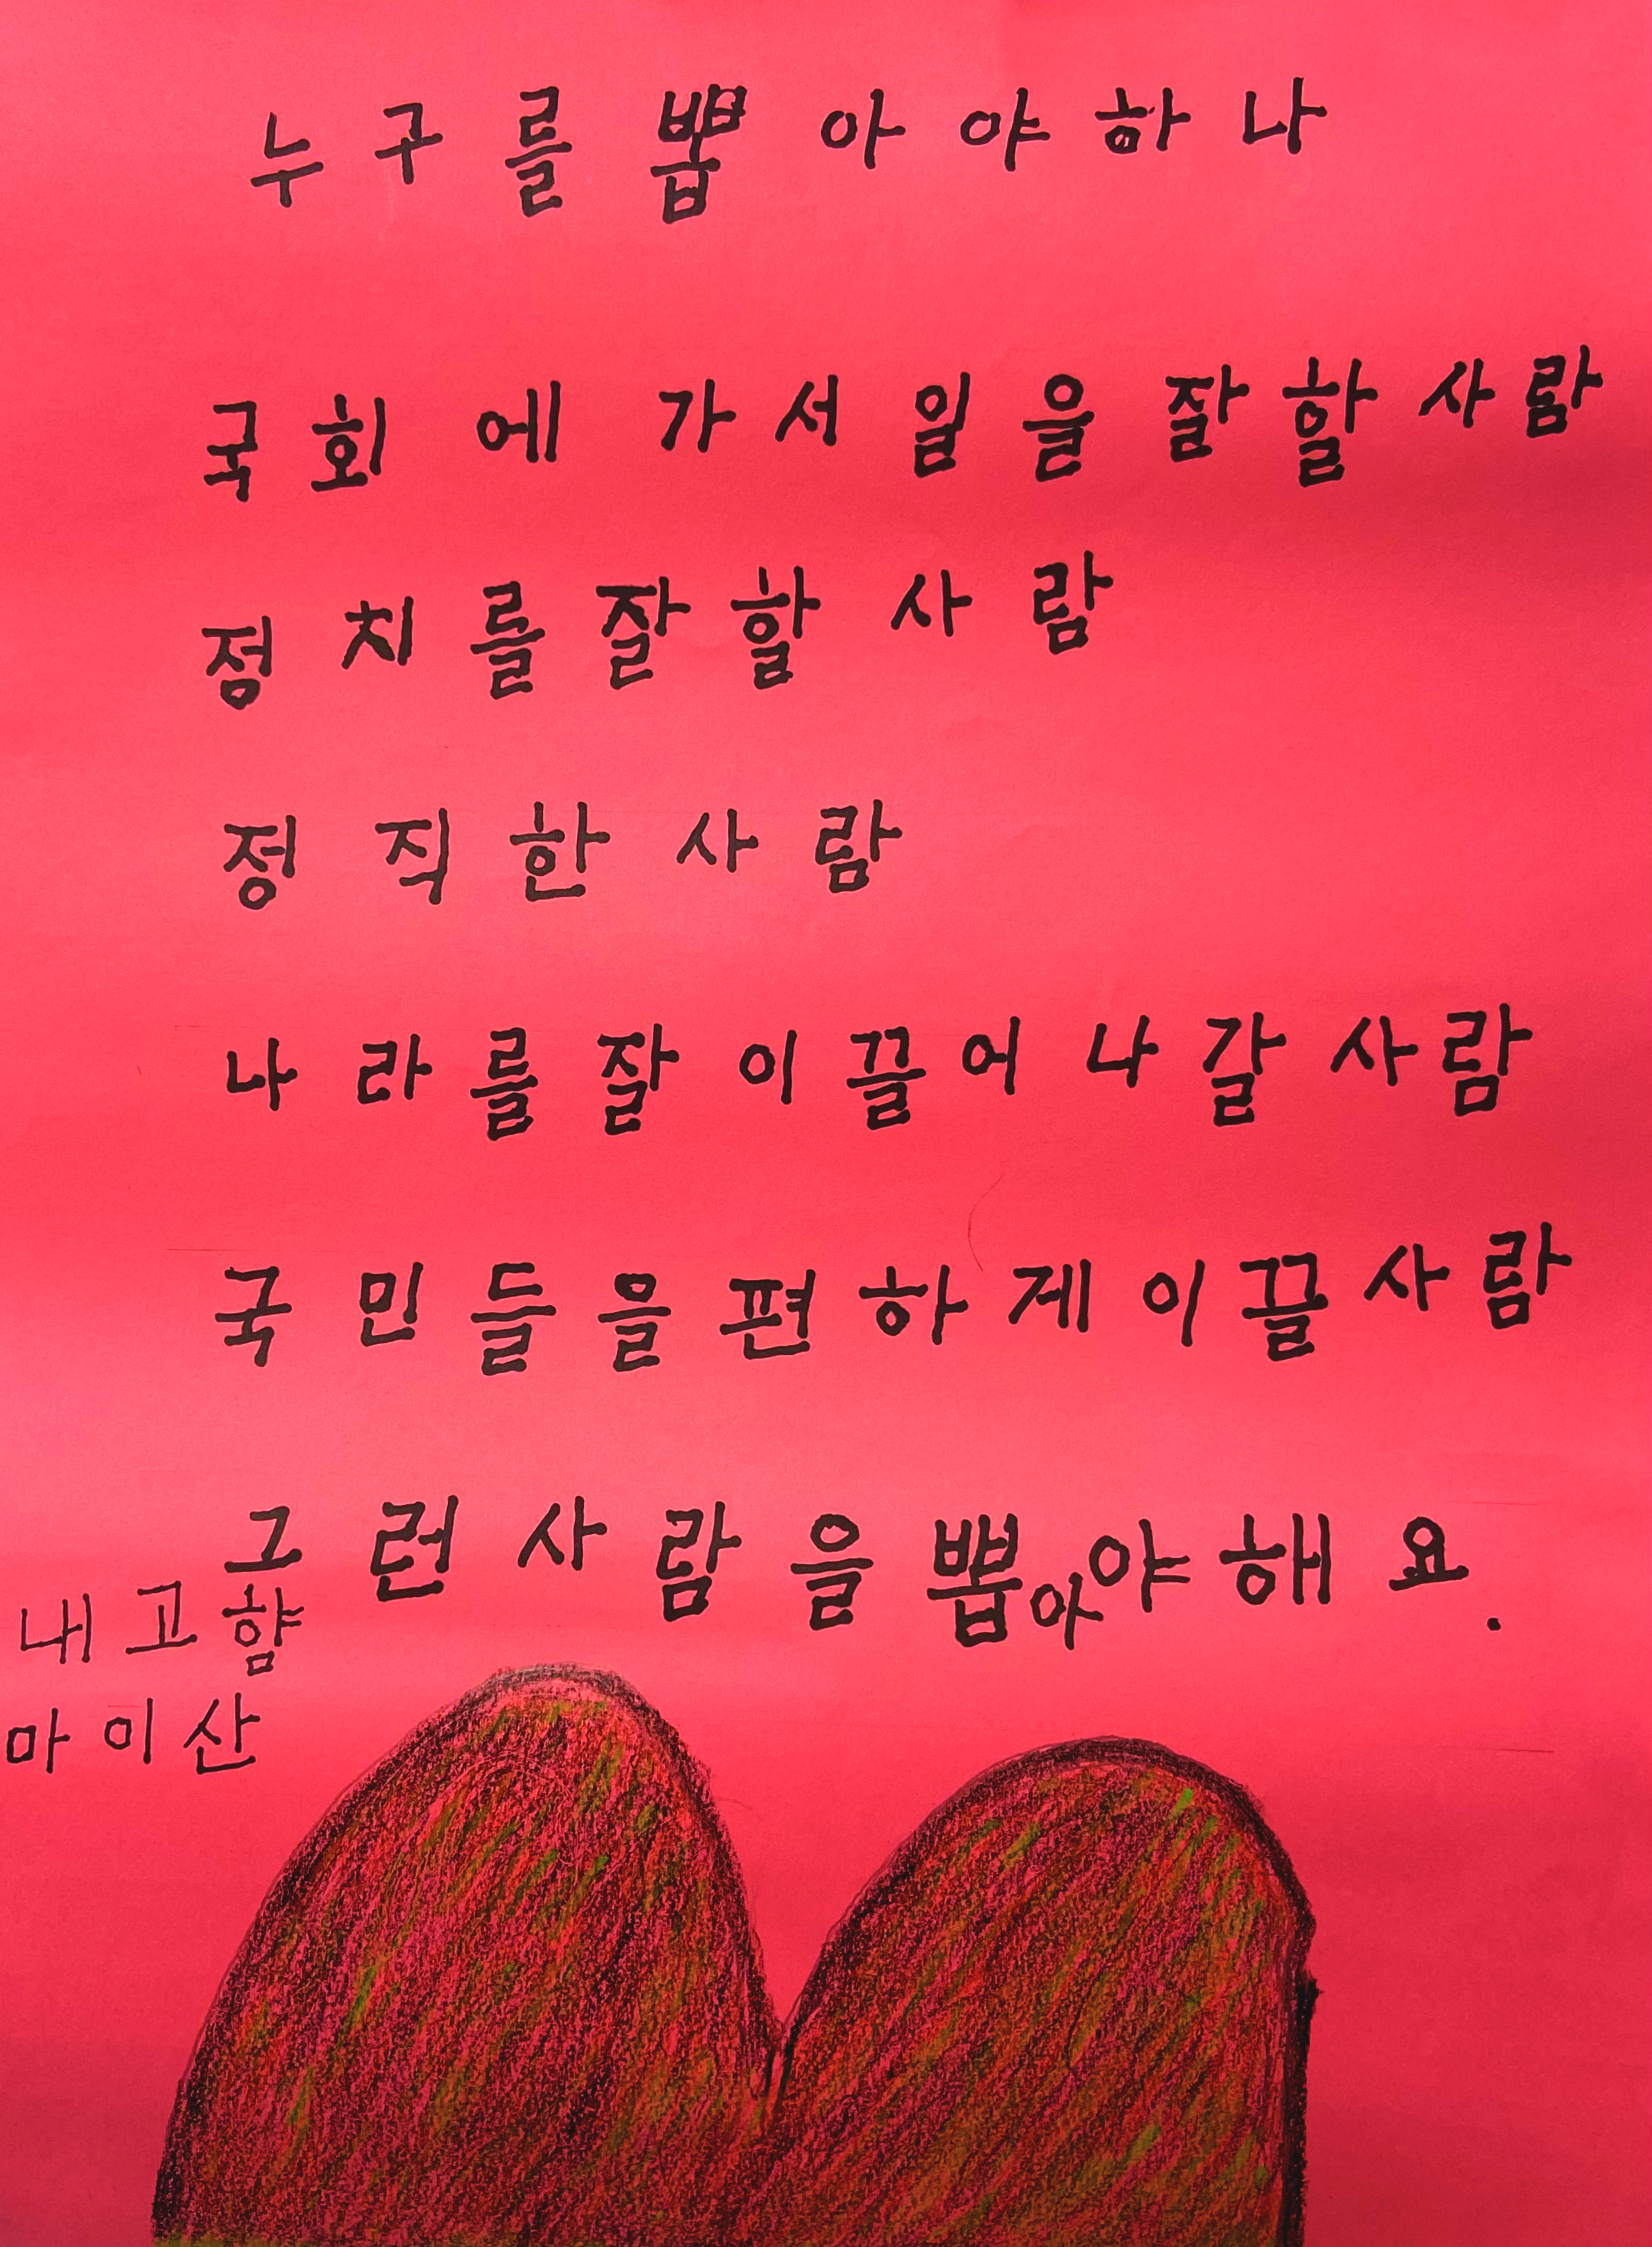 누구를 뽑아야하나
국회에 가서 일을 잘할 사람
정치를 잘할 사람
정직한 사람
나라를 잘 이끌어 나갈 사람
국민들을 편하게 이끌 사람
그런 사람을 뽑아야해요.
내고향
마이산